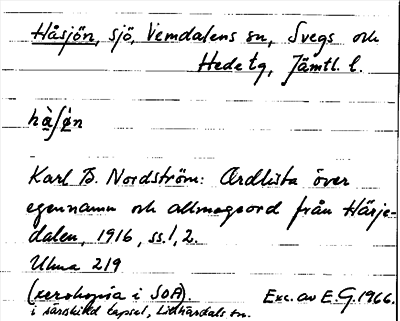 Håsjön, sjö, Vemdalens sn, Svegs och
Hede tg, Jämtl. l.
hå̀ʃø̀n
Karl B. Nordström: Ordlista över
egennamn och allmogeord från Härje-
dalen, 1916, ss. 1, 2.
Ulma 219
(xerokopia i SOA). Exc. av E.G. 1966.
i särskild kapsel, Lillhärdals sn.